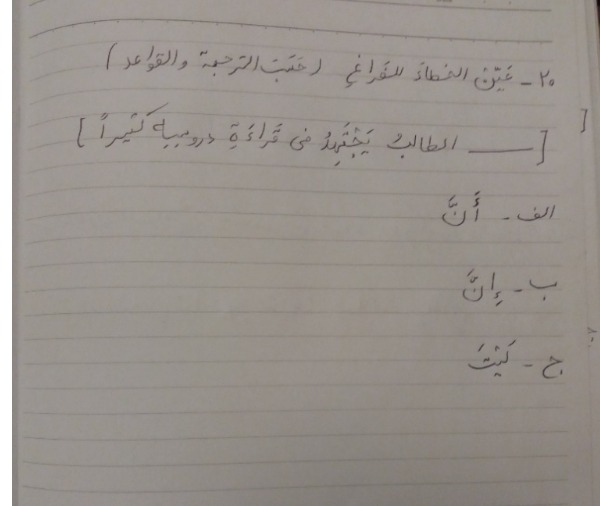 ۲۰ - عَیِّن الخطاءَ للفَراغِ (حَسَبَ الترجمة والقواعد)
[ ــــــ الطالبُ یَجْتَهِدُ فی قَراءَةِ دروسِهِ کثیراً ]
الف - أَنَّ
ب - إِنَّ
ج - لَیْتَ